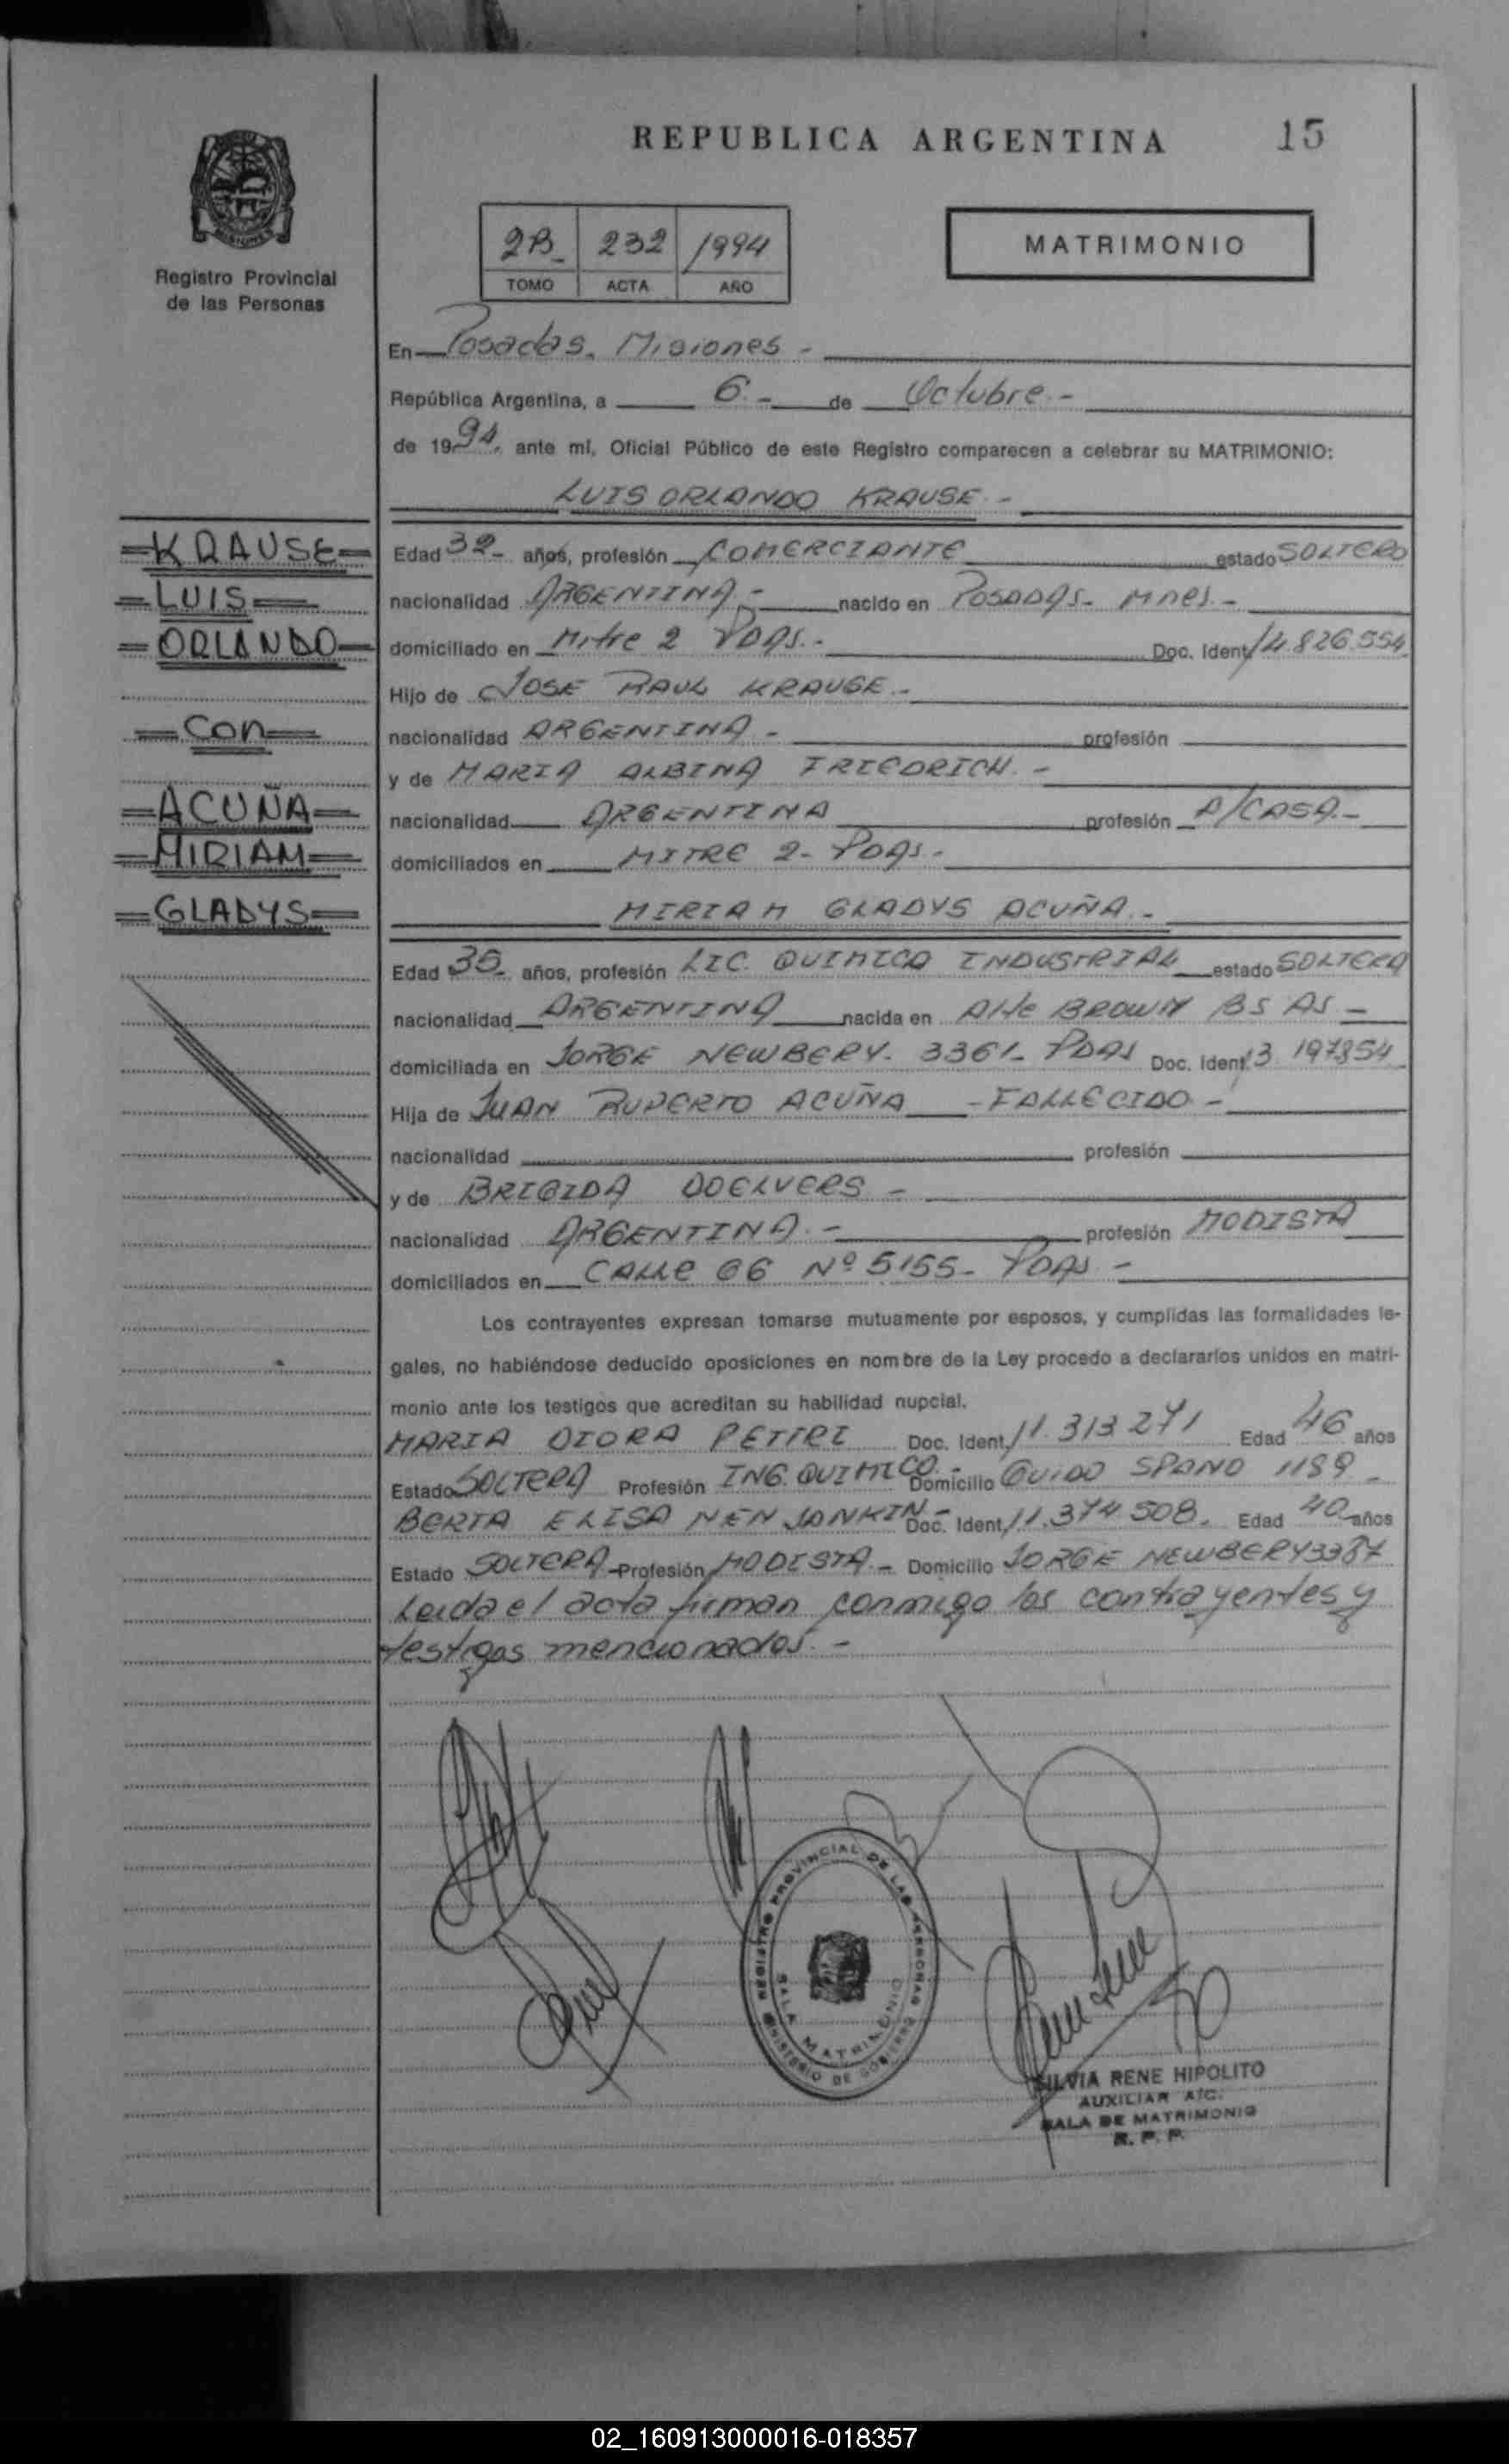 REPUBLICA ARGENTINA 15
Registro Provincial
de las Personas
2B 232 1994
TOMO ACTA AÑO
MATRIMONIO
En Posadas. Misiones -
República Argentina, a 6.- de Octubre.-
de 1994, ante mí, Oficial Público de este Registro comparecen a celebrar su MATRIMONIO:
LUIS ORLANDO KRAUSE.-
=KRAUSE=
=LUIS=
=ORLANDO=
=Con=
=ACUÑA=
=MIRIAM=
=GLADYS=
Edad 32- años, profesión COMERCIANTE estado SOLTERO
nacionalidad ARGENTINA.- nacido en POSADAS- Mnes.-
domiciliado en Mitre 2 PDAS.- Doc. Ident. 14.826.554
Hijo de JOSE RAUL KRAUSE.-
nacionalidad ARGENTINA - profesión
y de MARIA ALBINA FRIEDRICH. -
nacionalidad ARGENTINA profesión A/CASA.-
domiciliados en MITRE 2- PDAS.-
MIRIAM GLADYS ACUÑA.-
Edad 35- años, profesión LIC. QUIMICA INDUSTRIAL estado SOLTERA
nacionalidad ARGENTINA nacida en Alte BROWN BS AS -
domiciliada en JORGE NEWBERY. 3361- PDAS Doc. Ident. 13 197854
Hija de JUAN RUPERTO ACUÑA - FALLECIDO -
nacionalidad profesión
y de BRIGIDA DOELVERS -
nacionalidad ARGENTINA.- profesión MODISTA
domiciliados en CALLE 66 Nº 5155- PDAS -
Los contrayentes expresan tomarse mutuamente por esposos, y cumplidas las formalidades le-
gales, no habiéndose deducido oposiciones en nombre de la Ley procedo a declararlos unidos en matri-
monio ante los testigos que acreditan su habilidad nupcial.
MARIA PETTRI Doc. Ident. 11.313.271 Edad 46 años
Estado SOLTERA Profesión ING. QUIMICO.- Domicilio GUIDO SPANO 1189-
BERTA ELISA NENJONKIN- Doc. Ident. 11.374.508. Edad 40 años
Estado SOLTERA Profesión MODISTA.- Domicilio JORGE NEWBERY 3387
Leida el acta firman conmigo los contrayentes y
testigos mencionados.-
REGISTRO PROVINCIAL DE LAS PERSONAS
SALA MATRIMONIO
MINISTERIO DE GOBIERNO
SILVIA RENE HIPOLITO
AUXILIAR A/C.
SALA DE MATRIMONIO
R. P. P.
02_160913000016-018357